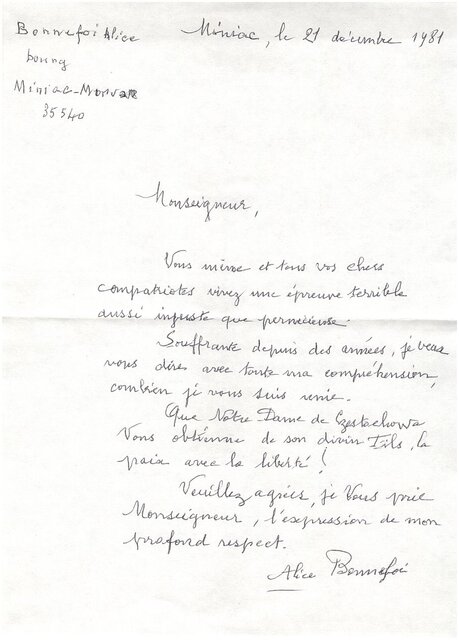 Bonnefoi Alice
bourg
Miniac-Morvan
35540
Miniac, le 21 décembre 1981
Monseigneur,
Vous même et tous vos chers
compatriotes vivez une épreuve terrible
aussi injuste que pernicieuse.
Souffrante depuis des années, je veux
vous dire avec toute ma compréhension,
combien je vous suis unie.
Que Notre Dame de Częstochowa
Vous obtienne de son divin Fils, la
paix avec la liberté !
Veuillez agréer, je Vous prie
Monseigneur, l'expression de mon
profond respect.
Alice Bonnefoi